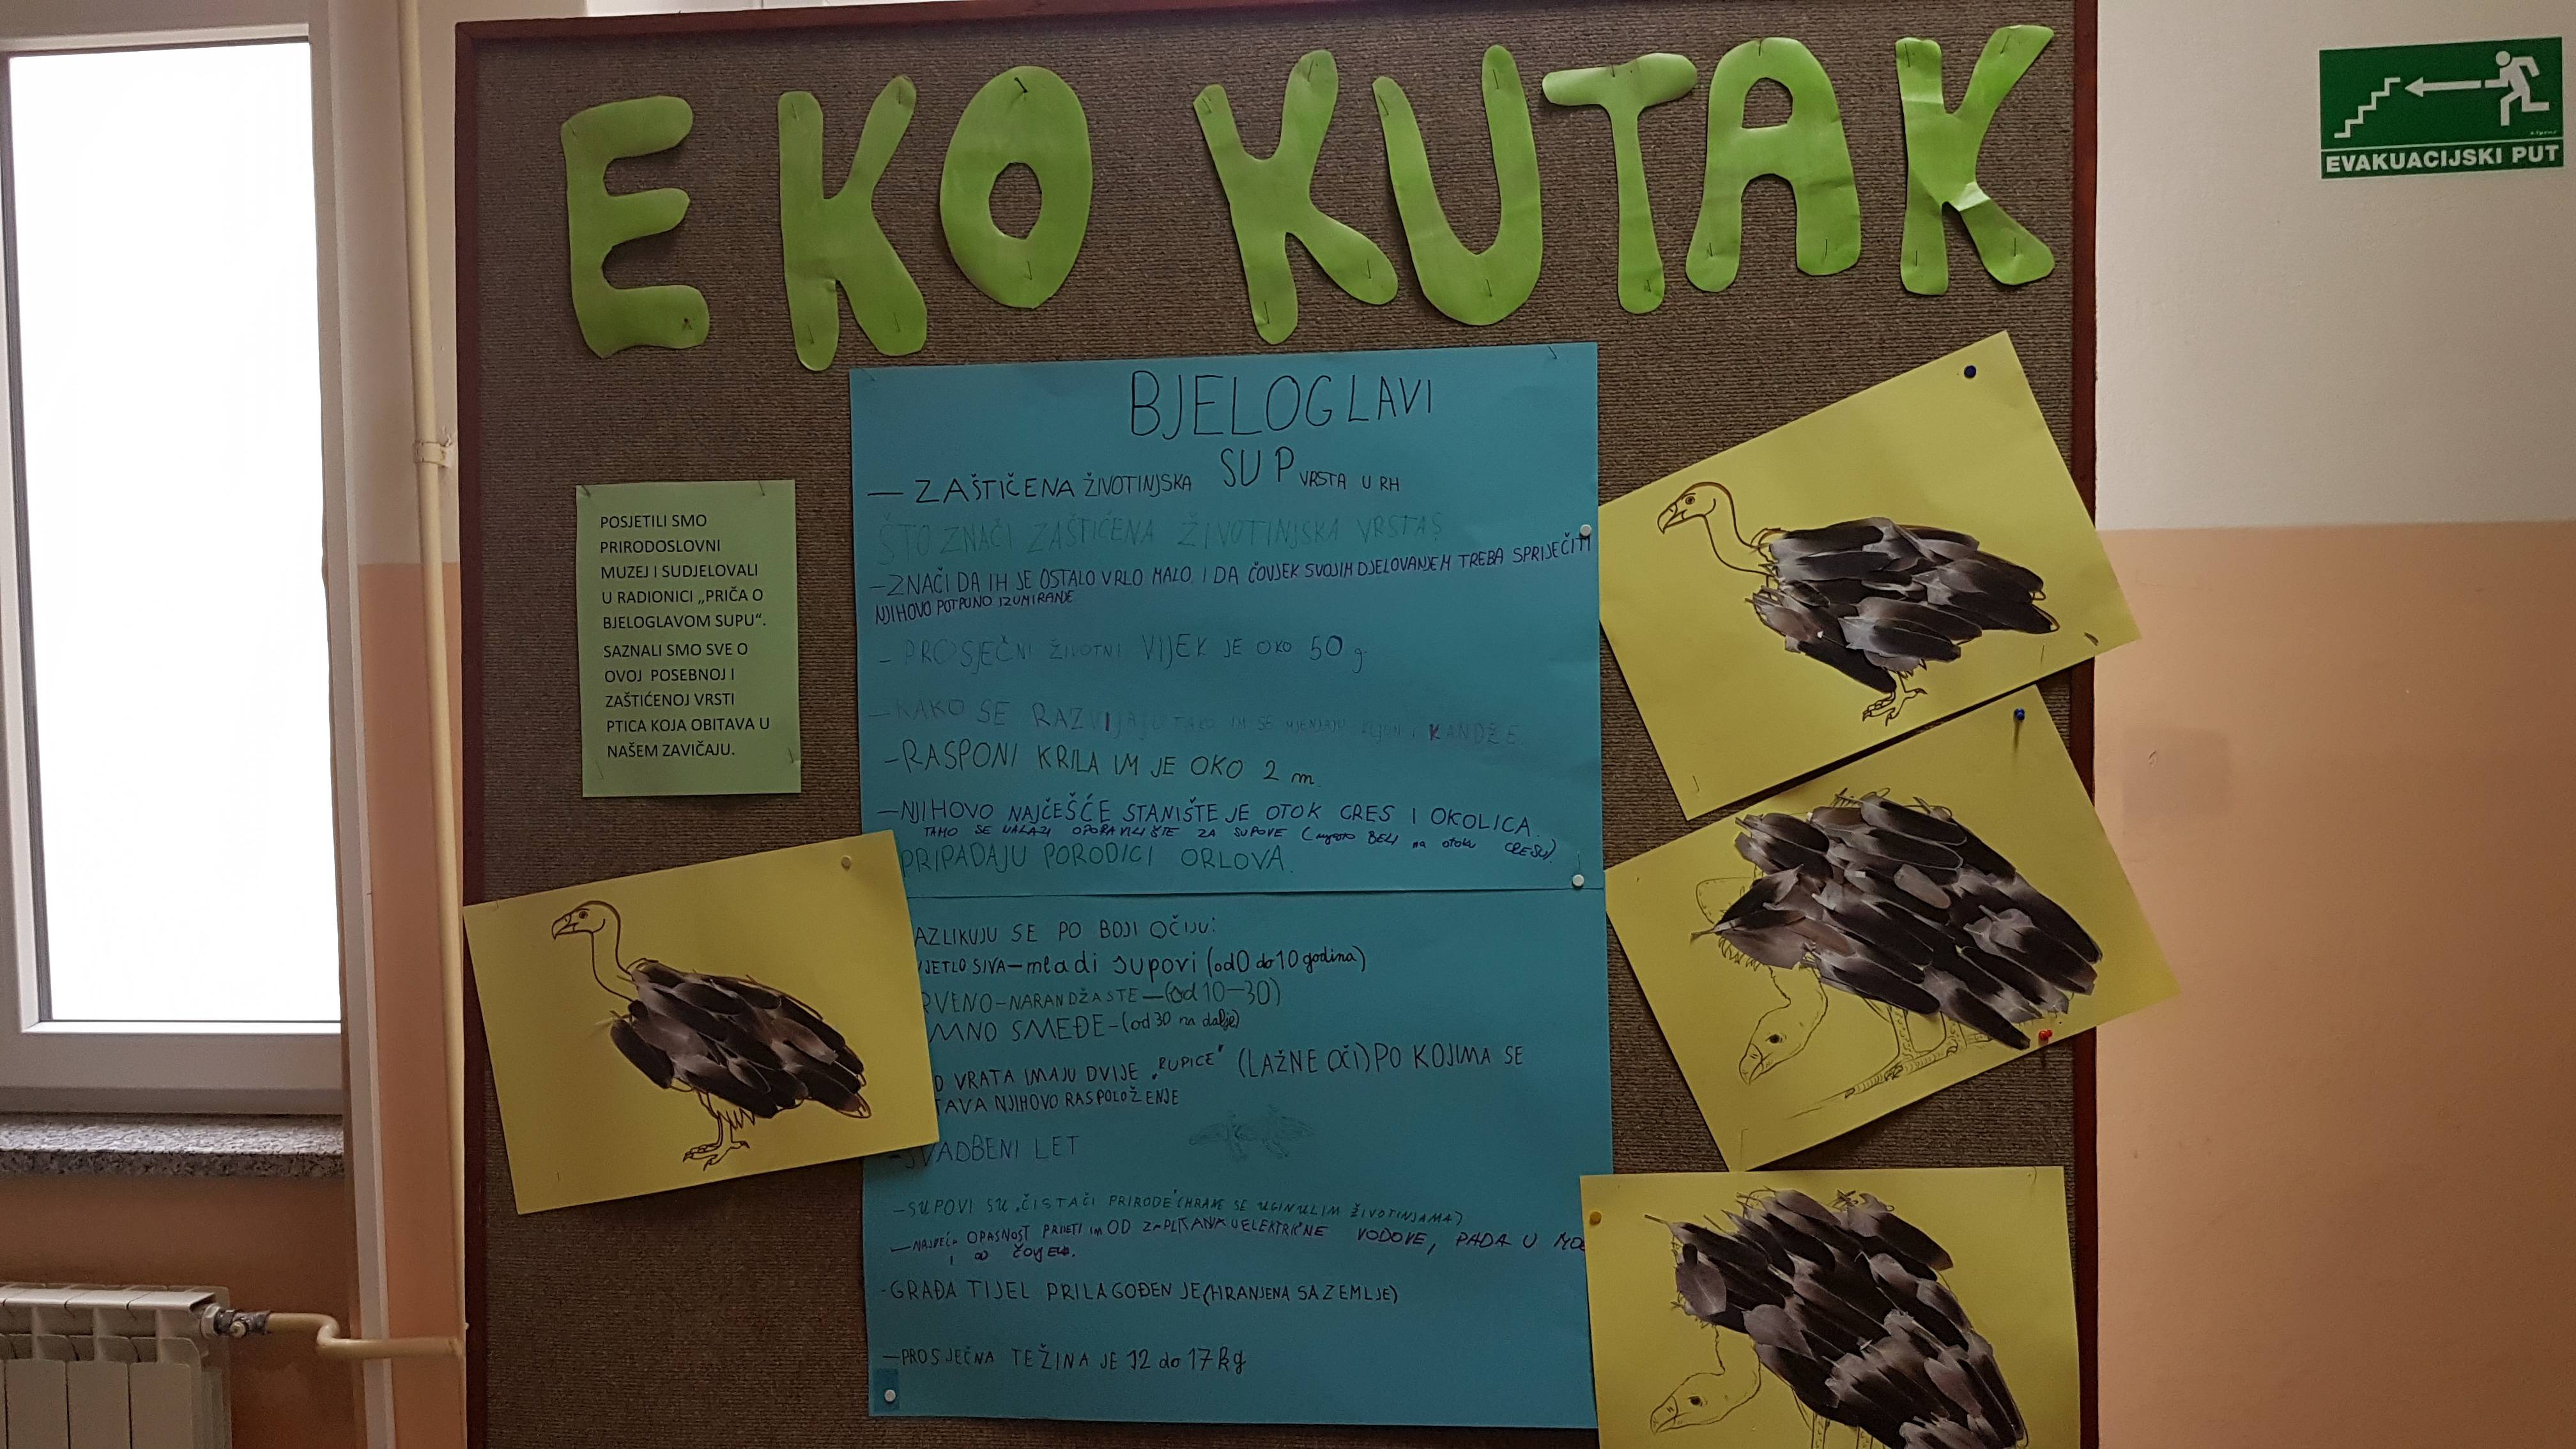 EKO KUTAK
EVAKUACIJSKI PUT
POSJETILI SMO
PRIRODOSLOVNI
MUZEJ I SUDJELOVALI
U RADIONICI „PRIČA O
BJELOGLAVOM SUPU“.
SAZNALI SMO SVE O
OVOJ POSEBNOJ I
ZAŠTIĆENOJ VRSTI
PTICA KOJA OBITAVA U
NAŠEM ZAVIČAJU.
BJELOGLAVI
SUP
— ZAŠTIČENA ŽIVOTINJSKA VRSTA U RH
ŠTO ZNAČI ZAŠTIĆENA ŽIVOTINJSKA VRSTA
-ZNAČI DA IH JE OSTALO VRLO MALO, I DA ČOVJEK SVOJIM DJELOVANJEM TREBA SPRIJEČITI
NJIHOVO POTPUNO IZUMIRANJE
- PROSJEČNI ŽIVOTNI VIJEK JE OKO 50 g.
-KAKO SE RAZVIJAJU TAKO IM SE MJENJAJU KLJUN I KANDŽE.
-RASPONI KRILA IM JE OKO 2 m.
-NJIHOVO NAJČEŠĆE STANIŠTE JE OTOK CRES I OKOLICA.
TAMO SE NALAZI OPORAVILIŠTE ZA SUPOVE (mjesto BELI na otoku CRESU).
PRIPADAJU PORODICI ORLOVA.
AZLIKUJU SE PO BOJI OČIJU:
JETLO SIVA-mladi supovi (od 0 do 10 godina)
RVENO-NARANDŽASTE-(od 10-30)
MNO SMEĐE-(od 30 na dalje)
D VRATA IMAJU DVIJE „RUPICE" (LAŽNE OČI) PO KOJIMA SE
TAVA NJIHOVO RASPOLOŽENJE
-SVADBENI LET
-SUPOVI SU „ČISTAČI PRIRODE" (HRANE SE UGINULIM ŽIVOTINJAMA)
-NAJVEĆA OPASNOST PRIJETI im OD ZAPLITANJA U ELEKTRIČNE VODOVE, PADA U MO
I OD ČOVJEKA.
-GRAĐA TIJEL PRILAGOĐEN JE (HRANJENA SA ZEMLJE)
-PROSJEČNA TEŽINA JE 12 do 17 kg